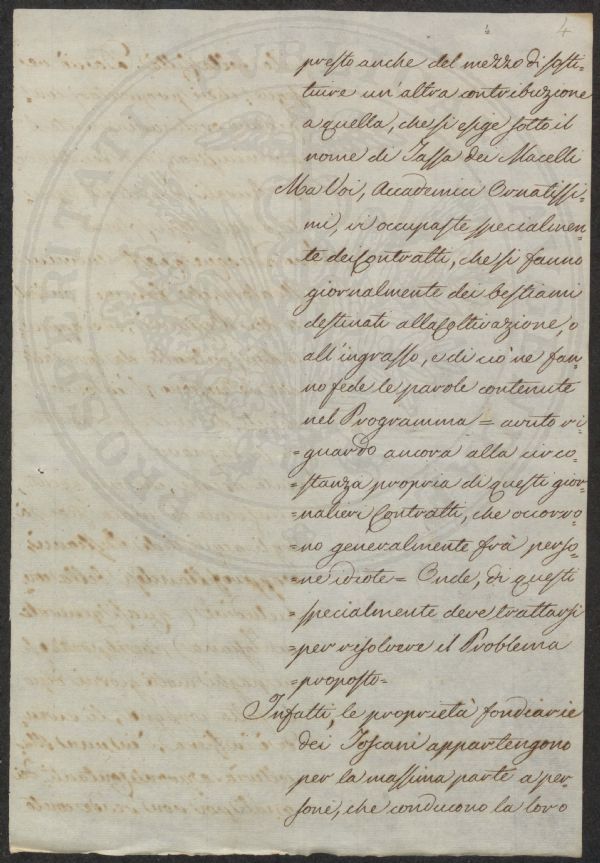 4
presto anche del mezzo di sosti-
tuire un'altra contribuzione
a quella, che si esige sotto il
nome di Tassa dei Macelli
Ma Voi, Accademici Ornatissi-
mi, vi occupaste specialmen-
te dei Contratti, che si fanno
giornalmente dei bestiami
destinati alla Coltivazione, o
all'ingrasso, e di ciò ne fan-
no fede le parole contenute
nel Programma = avuto ri-
=guardo ancora alla circo-
=stanza propria di questi gior-
=nalieri Contratti, che occorro-
=no generalmente frà perso-
=ne idiote = Onde, di questi
=specialmente deve trattarsi
=per risolvere il Problema
=proposto=
Infatti, le proprietà fondiarie
dei Toscani appartengono
per la massima parte a per-
sone, che conducono la loro